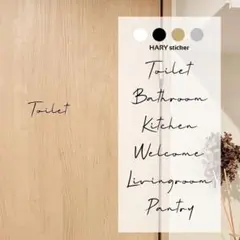 Toilet
HARY sticker
Toilet
Bathroom
Kitchen
Welcome
Livingroom
Pantry